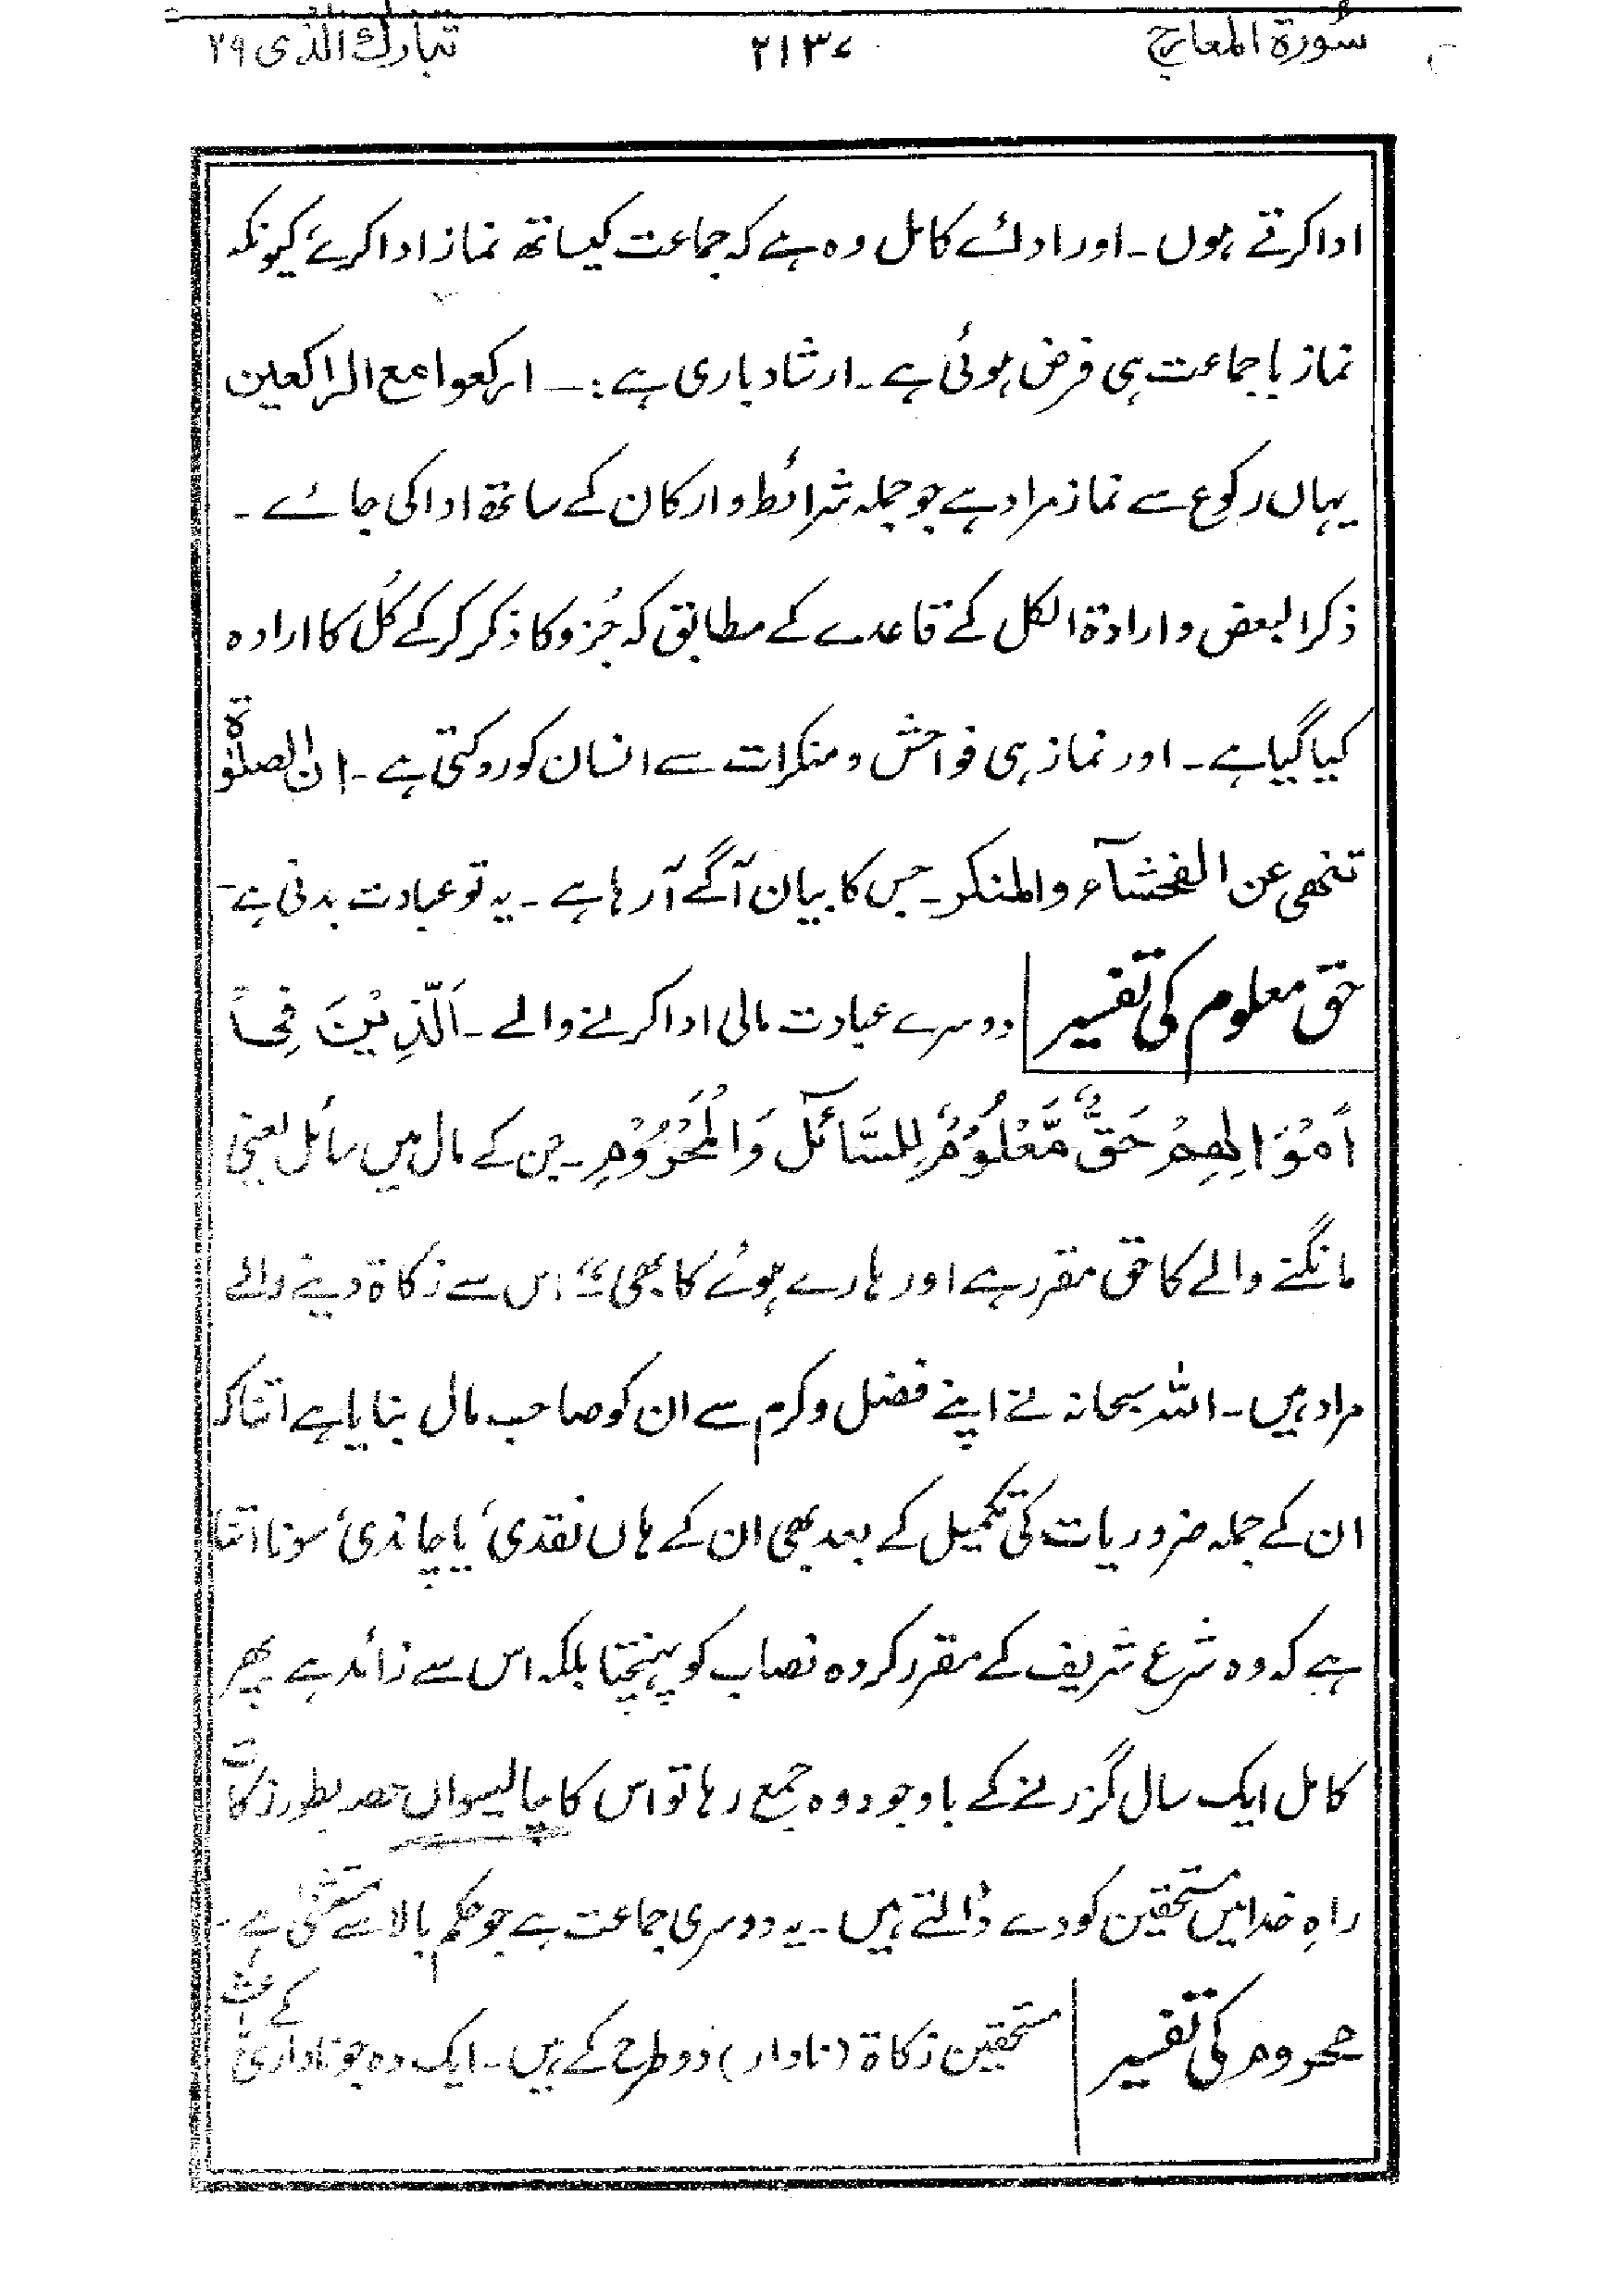 سُورة المعارج ۲۱۳۷ تبارك الذی ۲۹
ادا کرتے ہوں ۔ اور ادائے کامل وہ ہے کہ جماعت کیساتھ نماز ادا کرے، کیونکہ
نماز با جماعت ہی فرض ہوئی ہے ۔ ارشاد باری ہے :۔ ارکعوا مع الراکعین
یہاں رکوع سے نماز مراد ہے جو جملہ شرائط و ارکان کے ساتھ ادا کی جائے ۔
ذکر البعض و ارادۃ الکل کے قاعدے کے مطابق کہ جُزو کا ذکر کر کے کُل کا ارادہ
کیا گیا ہے ۔ اور نماز ہی فواحش و منکرات سے انسان کو روکتی ہے ۔ ان الصلوٰۃ
تنھی عن الفحشآء والمنکر ۔ جس کا بیان آگے آ رہا ہے ۔ یہ تو عبادت بدنی ہے ۔
حق معلوم کی تفسیر دوسرے عبادت مالی ادا کرنے والے ۔ اَلَّذِیْنَ فِیْٓ
اَمْوَالِھِمْ حَقٌّ مَّعْلُوْمٌ لِّلسَّآئِلِ وَالْمَحْرُوْمِ ۔ جن کے مال میں سائل یعنی
مانگنے والے کا حق مقرر ہے اور ہارے ہوئے کا بھی ؎ اس سے زکاۃ دینے والے
مراد ہیں ۔ اللہ سبحانہ نے اپنے فضل و کرم سے ان کو صاحب مال بنایا ہے اتنا کہ
ان کے جملہ ضروریات کی تکمیل کے بعد بھی ان کے ہاں نقدی، یا چاندی، سونا اتنا
ہے کہ وہ شرع شریف کے مقرر کردہ نصاب کو پہنچتا بلکہ اس سے زائد ہے پھر
کامل ایک سال گزرنے کے باوجود وہ جمع رہا تو اس کا چالیسواں حصہ بطور زکاۃ
راہِ خدا میں مستحقین کو دے ڈالتے ہیں ۔ یہ دوسری جماعت ہے جو حکم بالا سے مستثنیٰ ہے ۔
محروم کی تفسیر مستحقین زکاۃ (نادار) دو طرح کے ہیں ۔ ایک وہ جو ناداری کے